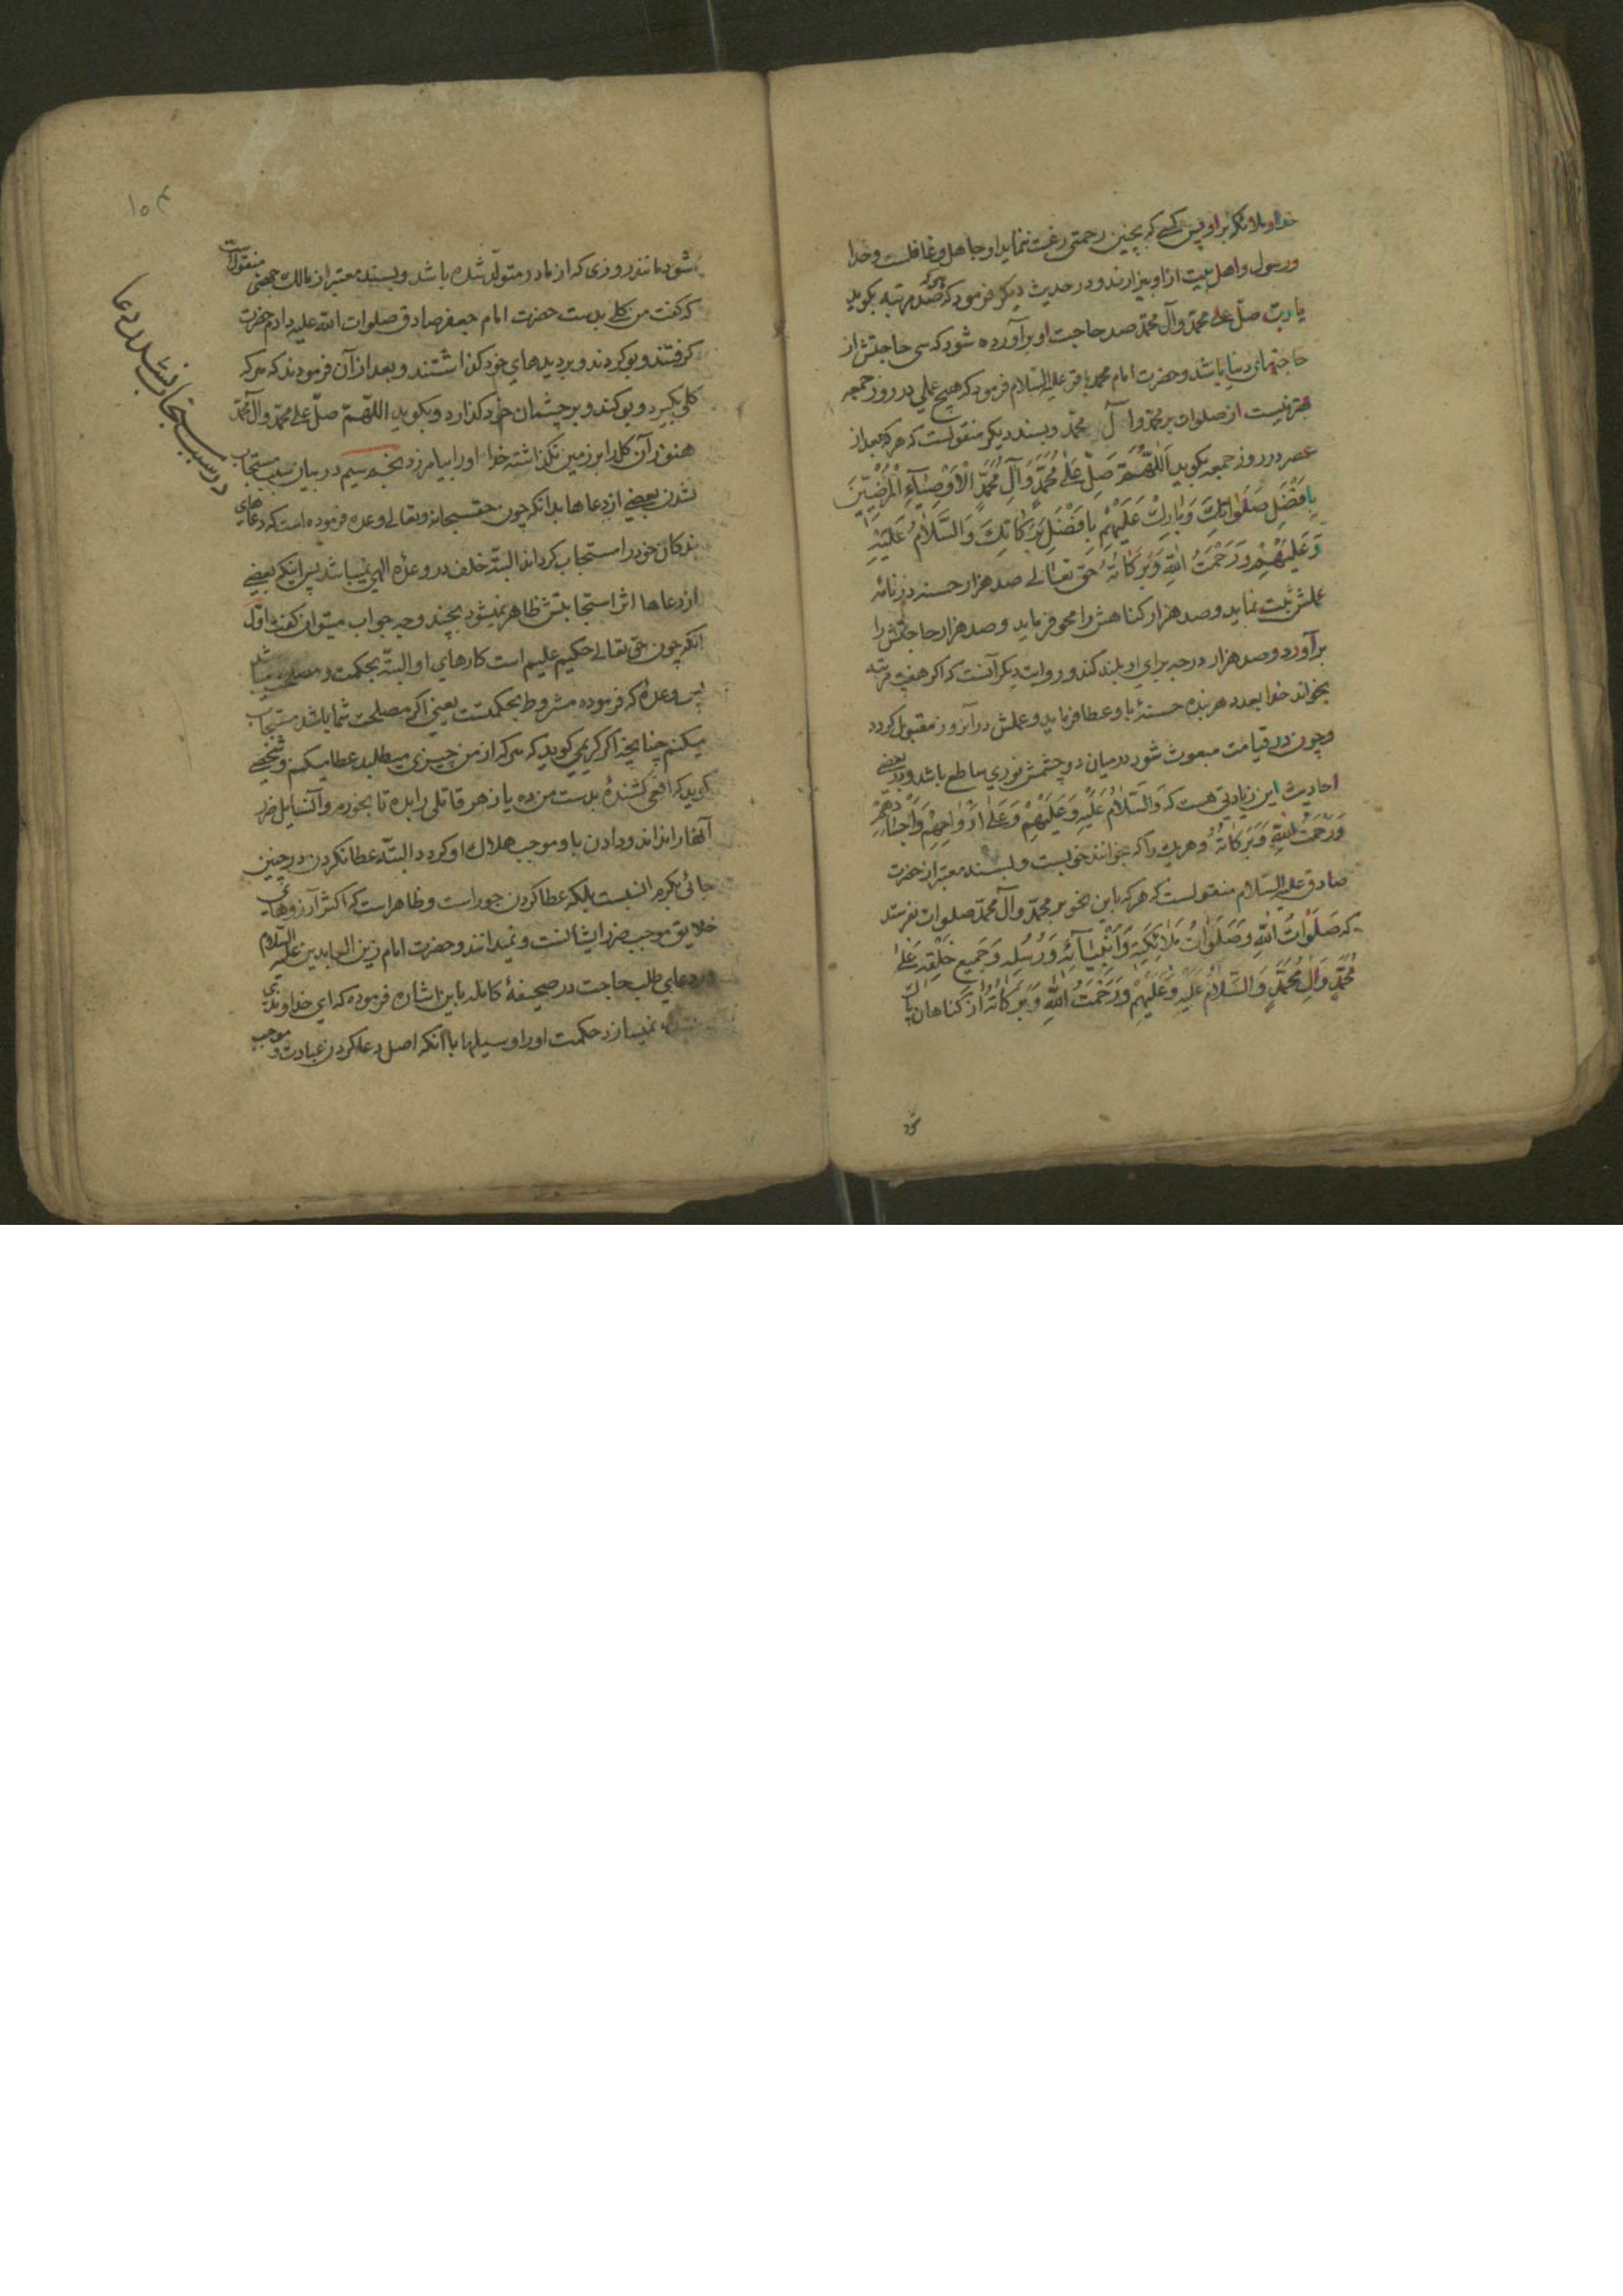 خدا و ملائکه بر او پس کسے که بچنین رحمتی رغبت ننماید او جاهل و غافلست و خدا
و رسول و اهل بیت از او بیزارند و در حدیث دیگر فرمود که هرکه صد مرتبه بکوید
یا ربّ صلّ علی محمّد و آل محمّد صد حاجت او برآورده شود که سی حاجتش از
حاجتهای دنیا باشد و حضرت امام محمد باقر علیه السّلام فرمود که هیچ عملی در روز جمعه
بهتر نیست از صلوات بر محمّد و آل محمّد و بسند دیکر منقولست که هرکه بعد از
عصر در روز جمعه بکوید اَللّٰهُمَّ صَلِّ عَلٰی مُحَمَّدٍ وَآلِ مُحَمَّدٍ الْأَوْصِیَآءِ الْمَرْضِیّینَ
بِاَفْضَلِ صَلَوٰاتِكَ وَبٰارِكْ عَلَیْهِمْ بِاَفْضَلِ بَرَكٰاتِكَ وَالسَّلٰامُ عَلَیْهِ
وَعَلَیْهِمْ وَرَحْمَتُ اللّٰهِ وَبَرَكٰاتُهُ حق تعالے صد هزار حسنه در نامهٔ
عملش ثبت نماید و صد هزار کناهش را محو فرماید و صد هزار حاجتش را
برآورد و صد هزار درجه برای او بلند کند و روایت دیکر آنست که اکر هفت مرتبه
بخواند خدا بعدد هر بنده حسنهٔ باو عطا فرماید و عملش در آنروز مقبول کردد
و چون در قیامت مبعوث شود در میان دو چشمش نوری ساطع باشد و در بعضے
احادیث این زیادتی هست که وَالسَّلٰامُ عَلَیْهِ وَعَلَیْهِمْ وَعَلٰی اَرْوٰاحِهِمْ وَاَجْسٰادِهِمْ
وَرَحْمَتُ اللّٰهِ وَبَرَكٰاتُهُ و هر یك را که بخوانند خوبست و بسند معتبر از حضرت
صادق علیه السّلام منقولست که هرکه باین نحو بر محمّد و آل محمّد صلوات بفرستد
که صَلَوٰاتُ اللّٰهِ وَصَلَوٰاتُ مَلٰائِكَتِهِ وَاَنْبِیٰآئِهِ وَرُسُلِهِ وَجَمیعِ خَلْقِهِ عَلٰی
مُحَمَّدٍ وَآلِ مُحَمَّدٍ وَالسَّلٰامُ عَلَیْهِ وَعَلَیْهِمْ وَرَحْمَتُ اللّٰهِ وَبَرَكٰاتُهُ از کناهان پاك
شود
۱۵۴
شود مانند روزی که از مادر متولّد شده باشد و بسند معتبر از مالك جهنی منقولست
که کفت من کلے بدست حضرت امام جعفر صادق صلوات الله علیه دادم حضرت
کرفتند و بو کردند و بر دیدهای خود کذاشتند و بعد از آن فرمودند که هرکه
کلی بکیرد و بو کند و بر چشمان خود کذارد و بکوید اللّهمّ صلّ علی محمّد و آل محمّد
هنوز آن کل را بر زمین نکذاشته خدا او را بیامرزد نجم سیم در بیان سبب مستجاب
نشدن بعضے از دعاها بدانکه چون حقسبحانه و تعالی وعده فرموده است که دعاهای
بندکان خود را مستجاب کرداند البتّه خلف در وعدهٔ الهی نمیباشد پس اینکه بعضے
از دعاها اثر استجابتش ظاهر نمیشود بچند وجه جواب میتوان کفت اوّل
آنکه چون حق تعالے حکیم علیم است کارهای او البتّه بحکمت و مصلحت میباشد
پس وعدهٔ که فرموده مشروط بحکمتست یعنی اکر مصلحت شما باشد مستجاب
میکنم چنانچه اکر کریمی کوید که هرکه از من چیزی میطلبد عطا میکنم و شخصے
کوید که افعی کشندهٔ بدست من ده یا زهر قاتلی را بده تا بخورم و آنسائل ضرر
آنها را نداند و دادن باو موجب هلاك او کردد البتّه عطا نکردن در چنین
جائی بکرم انسبست بلکه عطا کردن جور است و ظاهر است که اکثر آرزوهای
خلایق موجب ضرر ایشانست و نمیدانند و حضرت امام زین العابدین علیه السّلام
در دعای طلب حاجت در صحیفهٔ کامله باین اشاره فرموده که ای خداوندی که
نمیسازد حکمت او را وسیلها با آنکه اصل دعا کردن عبادت و موجب
در سبب مستجاب نشدن دعا